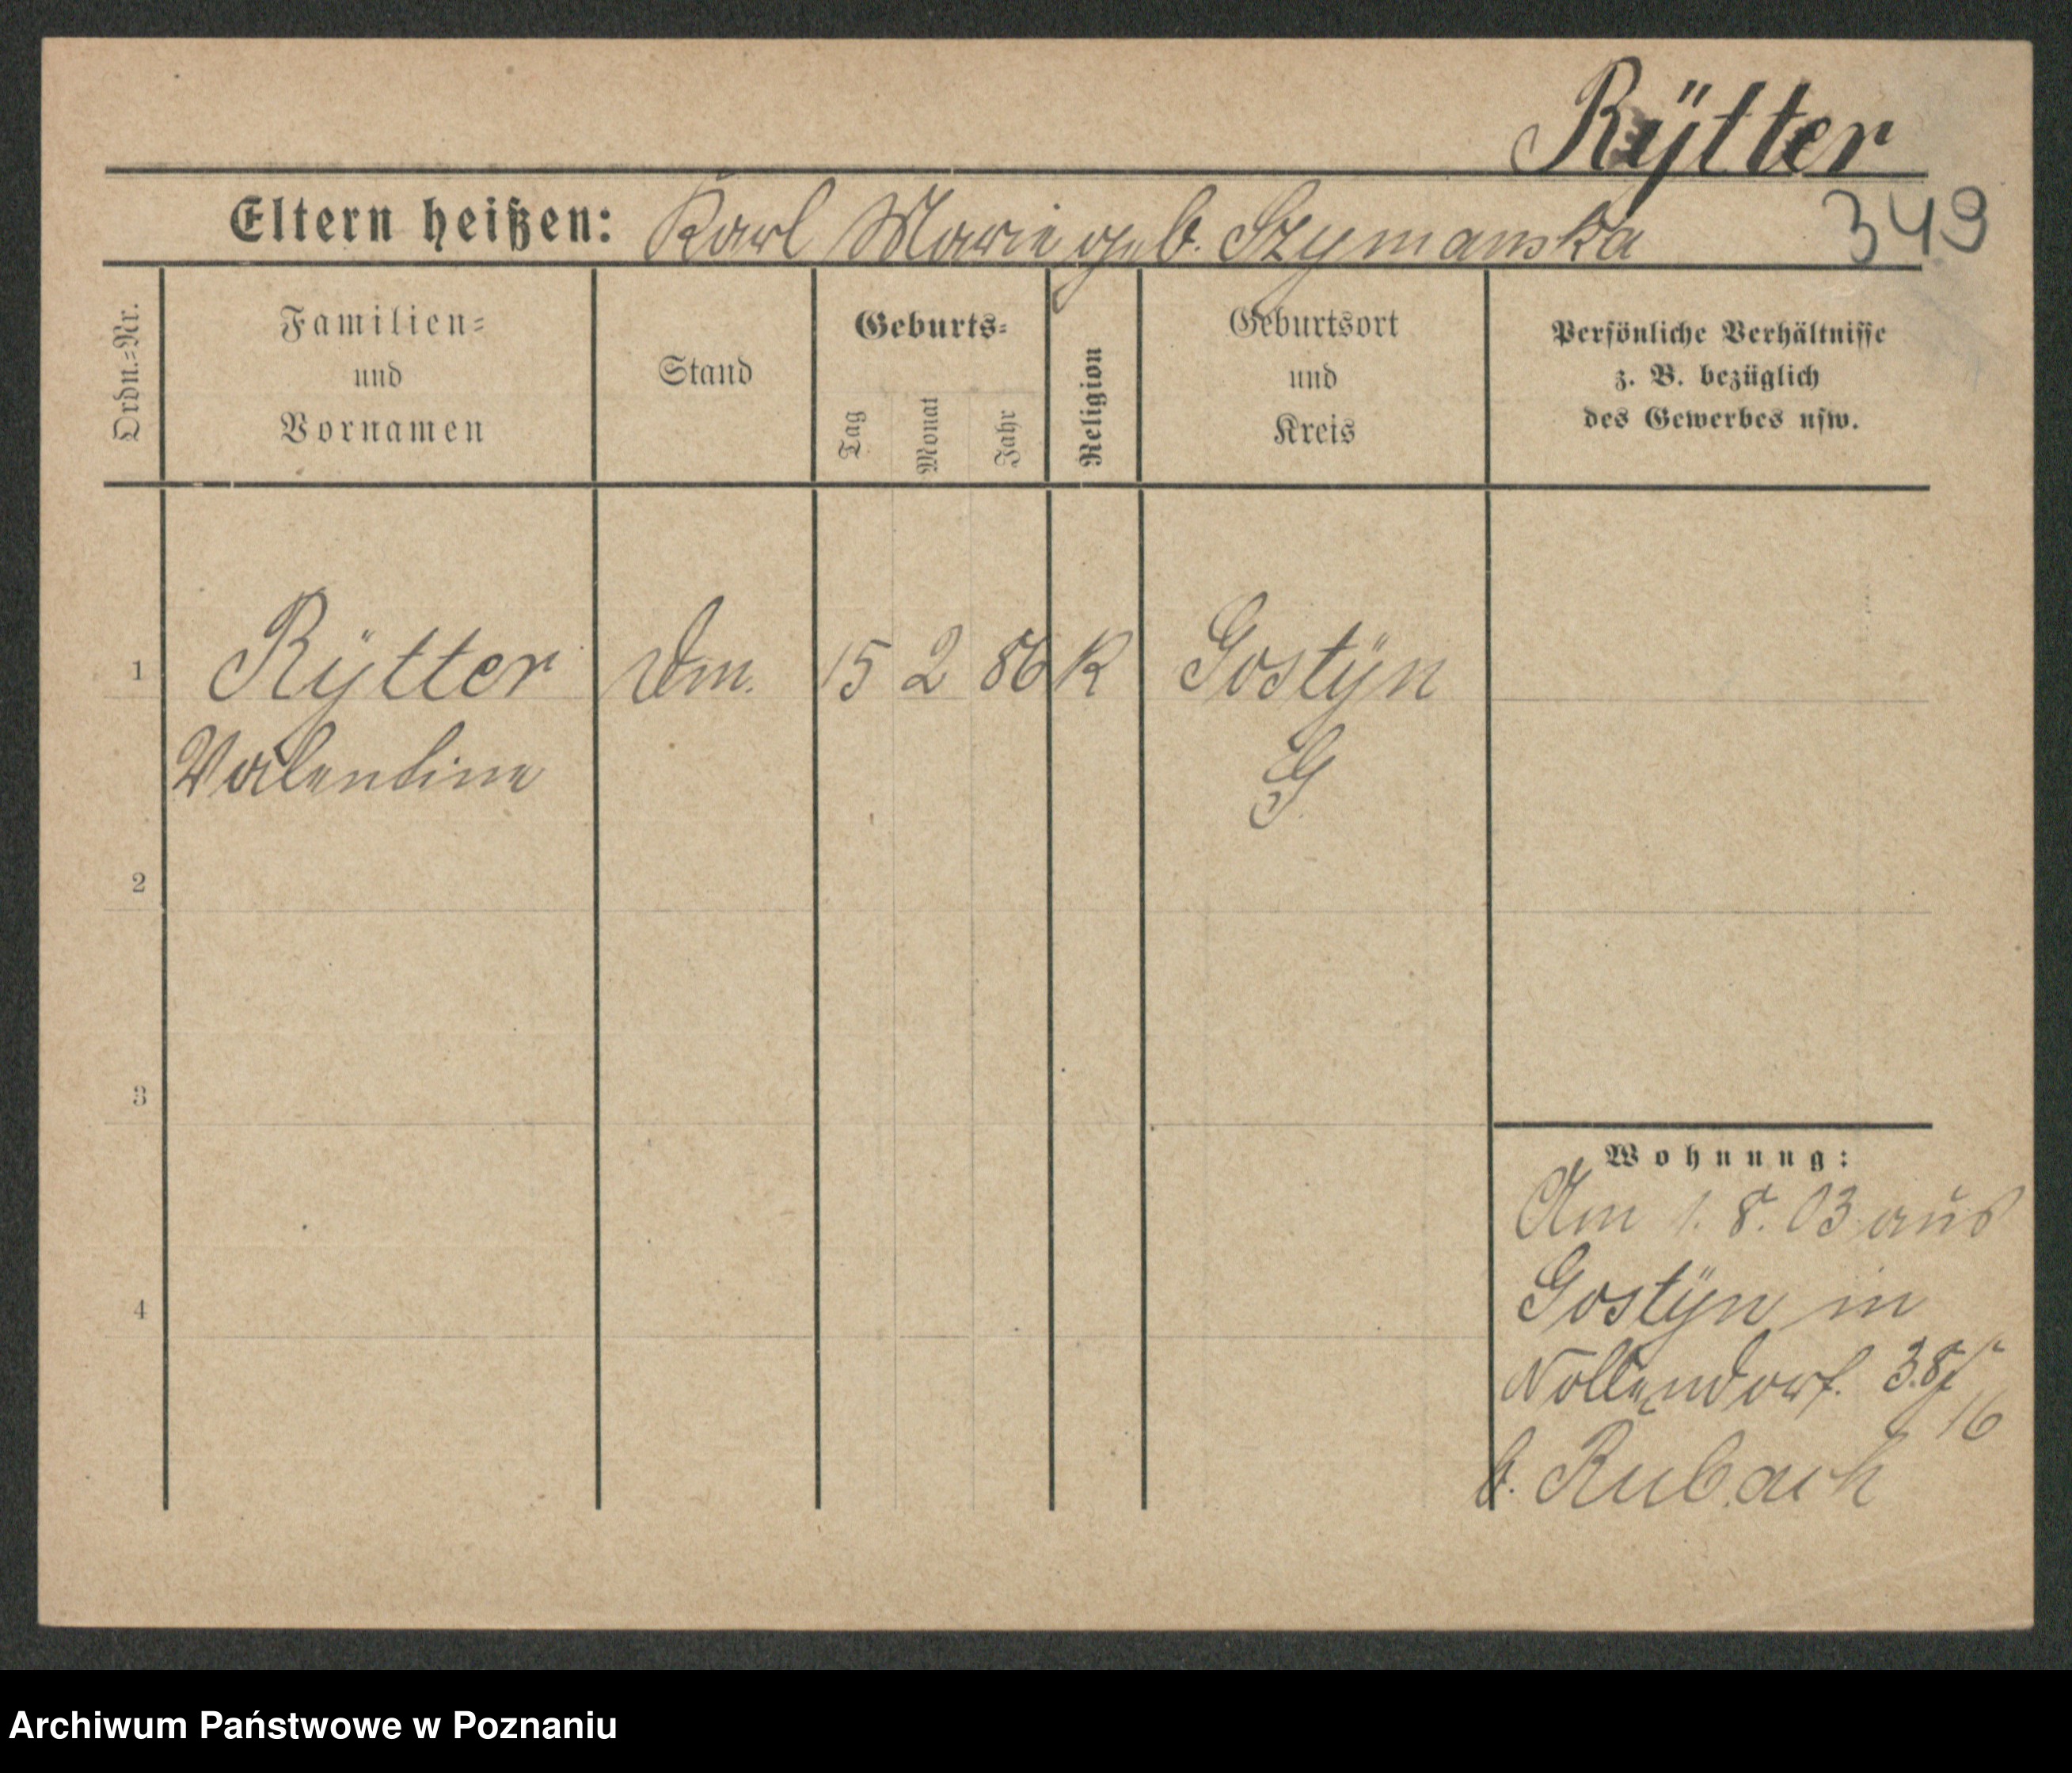 Rÿtter
Eltern heißen: Karl Marie geb. Szymanska 349
Ordn.=Nr.
Familien=
und
Vornamen
Stand
Geburts=
Tag
Monat
Jahr
Religion
Geburtsort
und
Kreis
Persönliche Verhältnisse
z. B. bezüglich
des Gewerbes usw.
1 Rÿtter Dm. 15 2 86 K Gostÿn
Valentine G
2
3
Wohnung:
Am 1. 8. 03 aus
4 Gostÿn in
Nollendorf. 38
16
b. Rubach
Archiwum Państwowe w Poznaniu